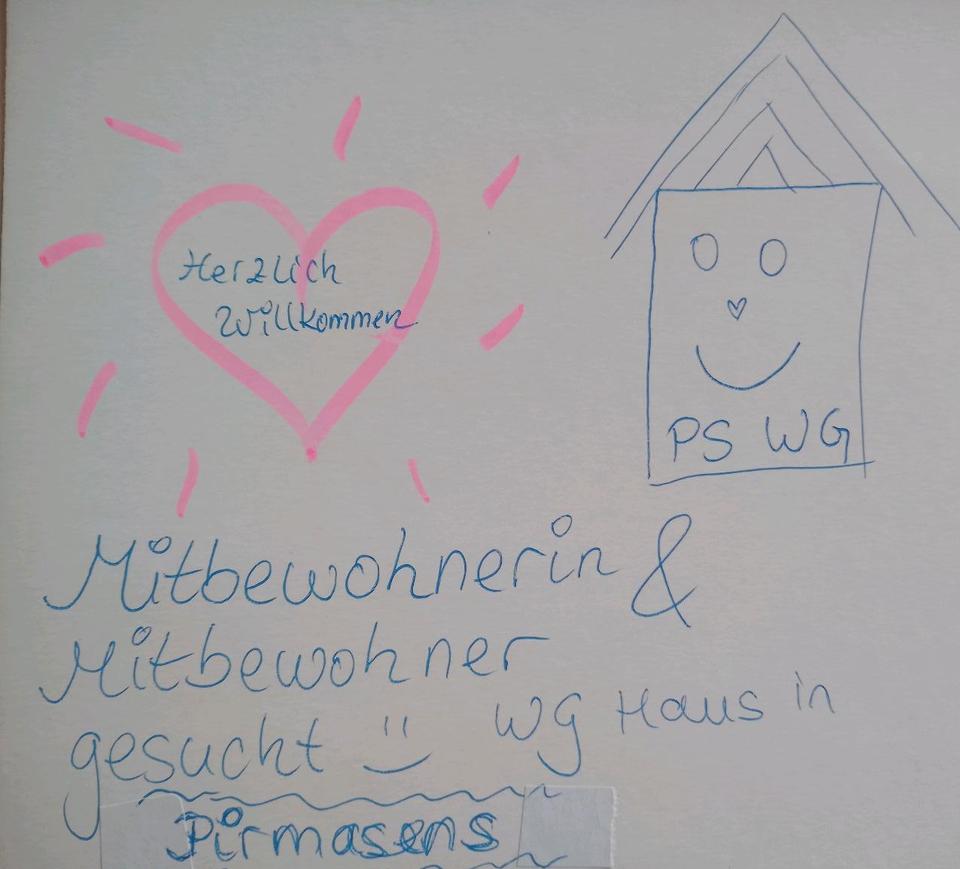 Herzlich
Willkommen
PS WG
Mitbewohnerin &
Mitbewohner
gesucht WG Haus in
Pirmasens